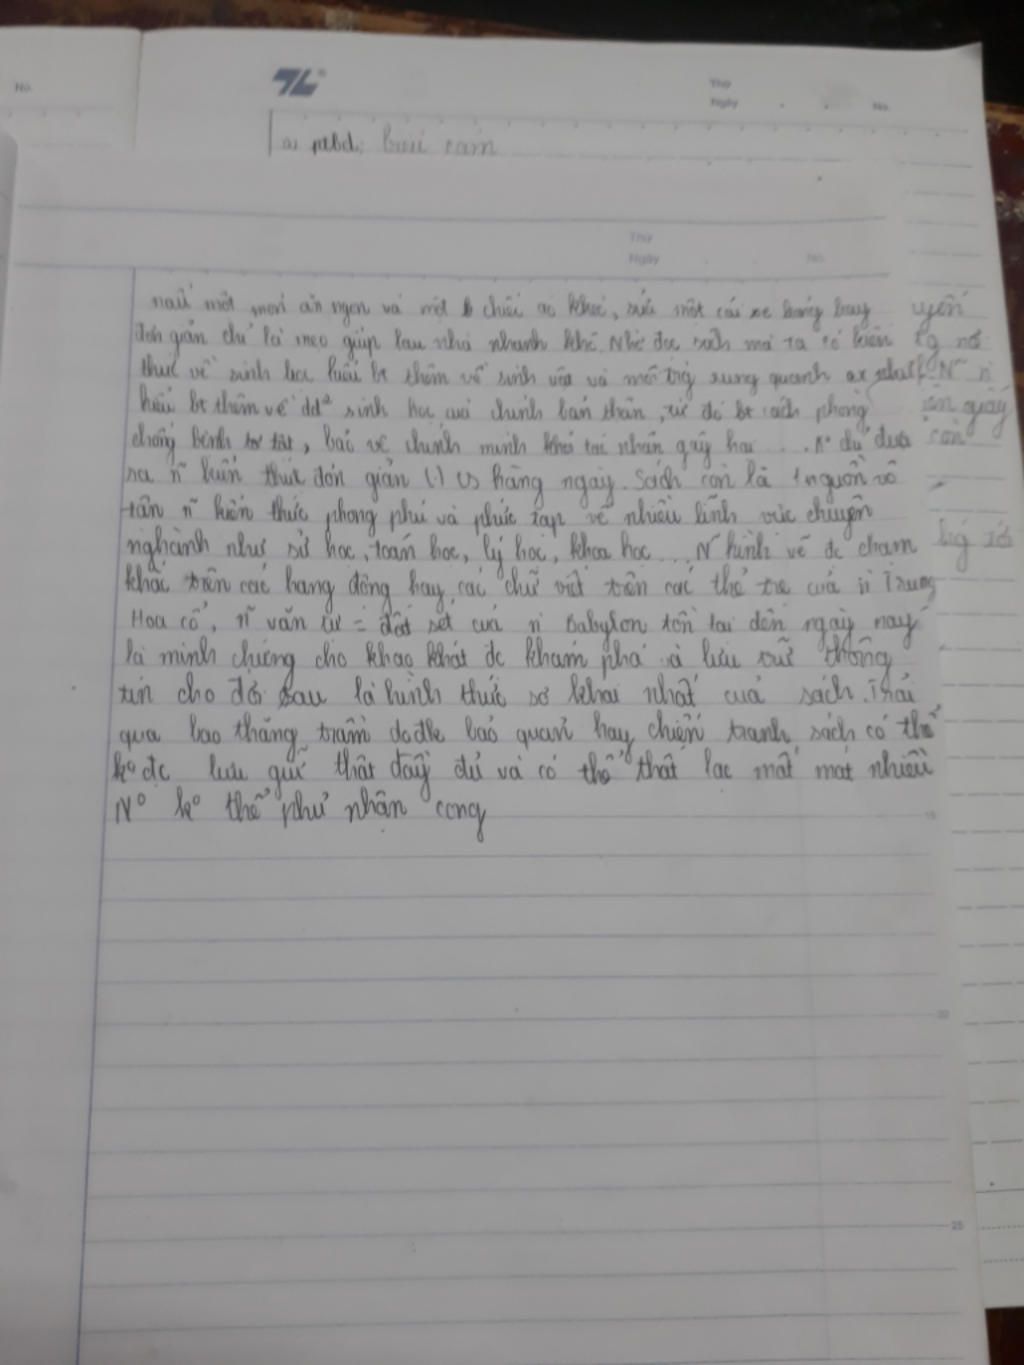 No.
TL
Thứ
Ngày . . No.
a, ptbđ: biểu cảm
Thứ
Ngày . . No.
nấu một món ăn ngon và một chiếc áo khoác, sửa một cái xe hỏng hay
đơn giản chỉ là mẹo giúp lau nhà nhanh khô. Nhờ đọc sách mà ta có kiến
thức về sinh học hiểu bt thêm về sinh vật và môi trg xung quanh
hiểu bt thêm về đđ sinh học của chính bản thân, từ đó bt cách phòng
chống bệnh tật, bảo vệ chính mình khỏi tác nhân gây hại .... Nó dù đưa
ra ~n kiến thức đơn giản (-) cs hàng ngày. Sách còn là 1 nguồn vô
tận ~n kiến thức phong phú và phức tạp về nhiều lĩnh vực chuyên
nghành như sử học, toán học, lý học, khoa học ... N~ hình vẽ đc chạm
khắc trên các hang động hay các chữ viết trên các thẻ tre của n Trung
Hoa cổ, ~n văn tự = đất sét của n Babylon tồn tại đến ngày nay
là minh chứng cho khao khát đc khám phá và lưu trữ thông
tin cho đời sau là hình thức sơ khai nhất của sách. Trải
qua bao thăng trầm do đk bảo quản hay chiến tranh sách có thể
ko đc lưu giữ thật đầy đủ và có thể thất lạc mất mát nhiều
No ko thể phủ nhận công